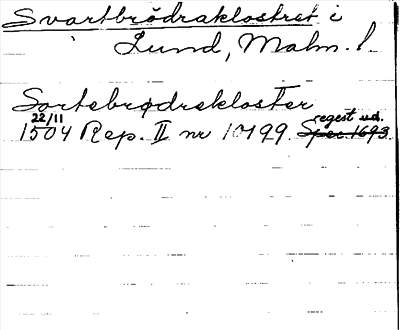 Svartbrödraklostret i
Lund, Malm. l.
Sortebrødrekloster
22/11 regest ud.
1504 Rep. II nr 10199. Spec. 1693.